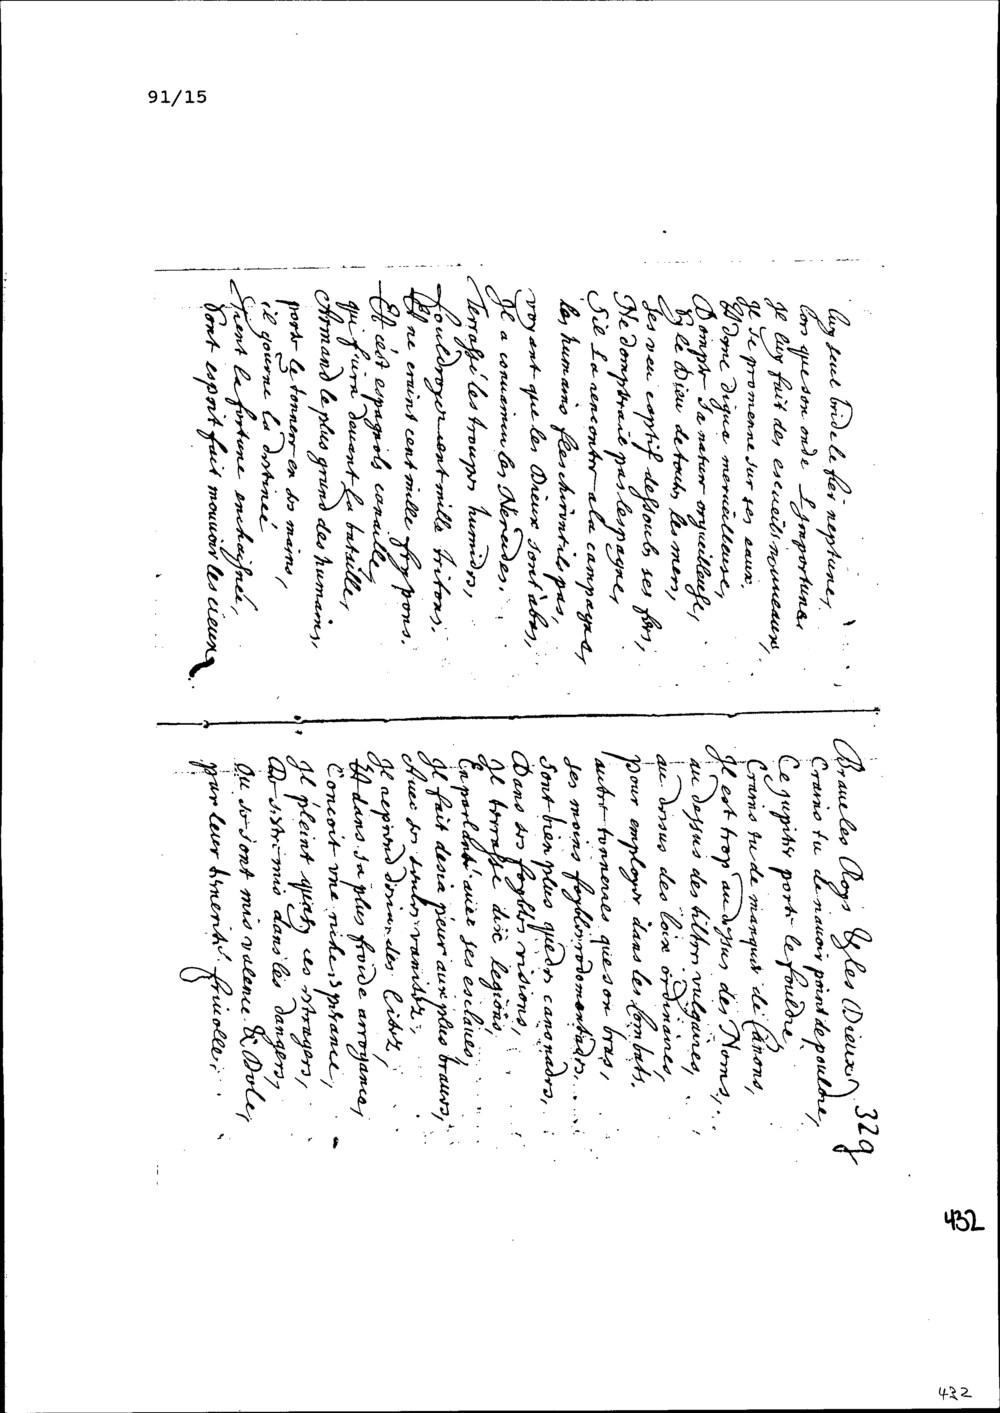 91/15
luy seul bride le fier neptune,
lors que son onde l'importune
Il luy fait des escueils nouveaux,
Il se promenne sur ses eaux.
Et d'une digue merveilleuse,
Dompte sa nature orgueilleuse,
Et le Dieu de toutes les mers,
Ses veu captif dessoubs ses fers,
Ne dompterait pas lespagne,
S'il la rencontre a la campagne,
les humains flechiront ils pas,
voyant que les Dieux sont abas,
Il a convaincu les Nereides,
Terrassé les troupes humides,
fouldroyer cent mille tritons.
Et ne craint cent mille frypons.
Et cest espagnols canaille,
qui fuira devant la bataille,
Armand le plus grand des humains,
porte le tonnere en ses mains,
il gouverne la destinée
Tient la fortune enchaisnée,
Dont esprit fait mouvoir les cieux
329
Brave les Roys & les Dieux
Crains tu de n'avoir point de pouldre,
Ce jupiter porte le fouldre,
Crains tu de manquer de Canons,
Il est trop au dessus des Noms,
au dessus des tiltres vulguaires,
au dessus des loix ordinaires,
pour employer dans les Combats.
autre tonneres que son bras,
ses moins foybles rodomontades
sont bien plus que des canonades,
Dans ses foybles visions,
Il terrasse dix legions,
En parlant avec ses esclaves,
Il fait desia peur aux plus braves,
Avec ses seules vanitez,
Il reprend des Citez,
Et dans sa plus froide arrogance,
Conçoit une riche esperance,
Il pleint quoy ces estrangers,
De s'estre mis dans les dangers,
Qui se sont mis valence & Dole,
par leur temerité frivolle.
432
432